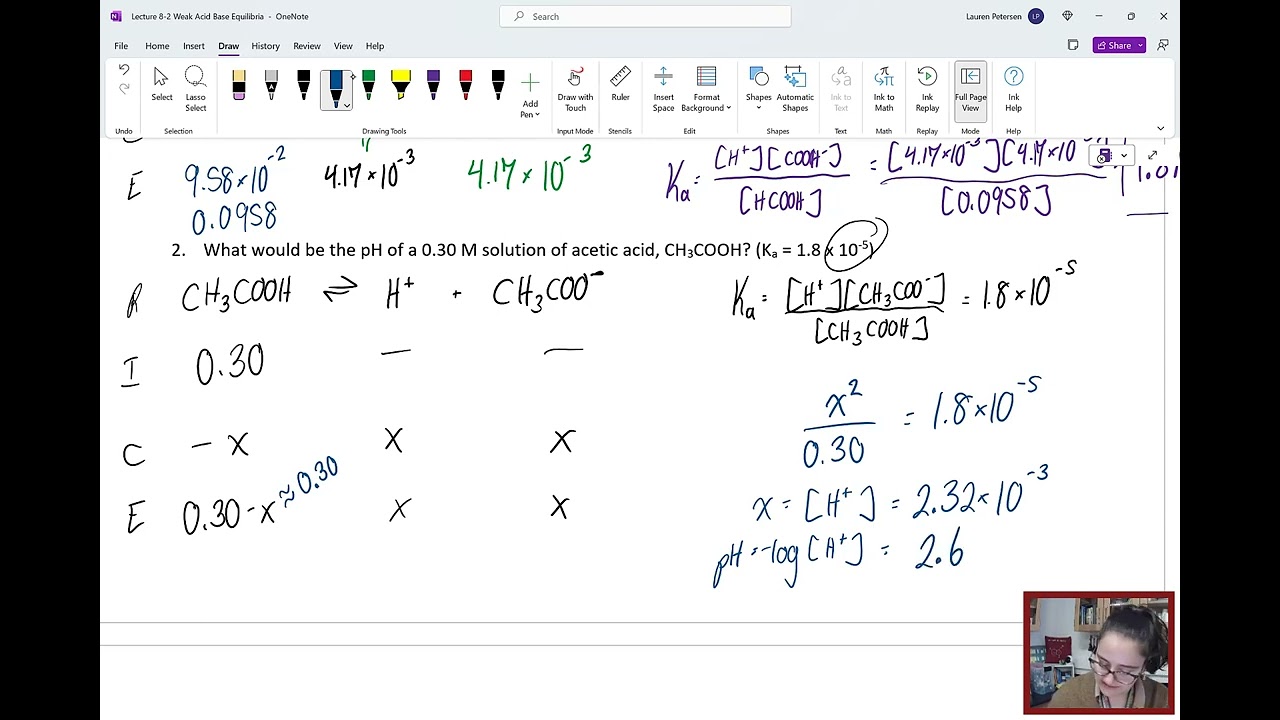 Lecture 8-2 Weak Acid Base Equilibria - OneNote
Search
Lauren Petersen LP
File Home Insert Draw History Review View Help
Share
Select Lasso Select Add Pen Draw with Touch Ruler Insert Space Format Background Shapes Automatic Shapes Ink to Text Ink to Math Ink Replay Full Page View Ink Help
Undo Selection Drawing Tools Input Mode Stencils Edit Shapes Text Math Replay Mode Help
E 9.58×10⁻² 4.17×10⁻³ 4.17×10⁻³
0.0958
Ka = [H⁺][COOH⁻] / [HCOOH] = [4.17×10⁻³][4.17×10 / [0.0958]
2. What would be the pH of a 0.30 M solution of acetic acid, CH₃COOH? (Kₐ = 1.8 x 10⁻⁵)
R CH₃COOH ⇌ H⁺ + CH₃COO⁻
Ka = [H⁺][CH₃COO⁻] / [CH₃COOH] = 1.8×10⁻⁵
I 0.30 — —
x² / 0.30 = 1.8×10⁻⁵
C -x x x
E 0.30-x ≈0.30 x x
x = [H⁺] = 2.32×10⁻³
pH = -log[H⁺] = 2.6